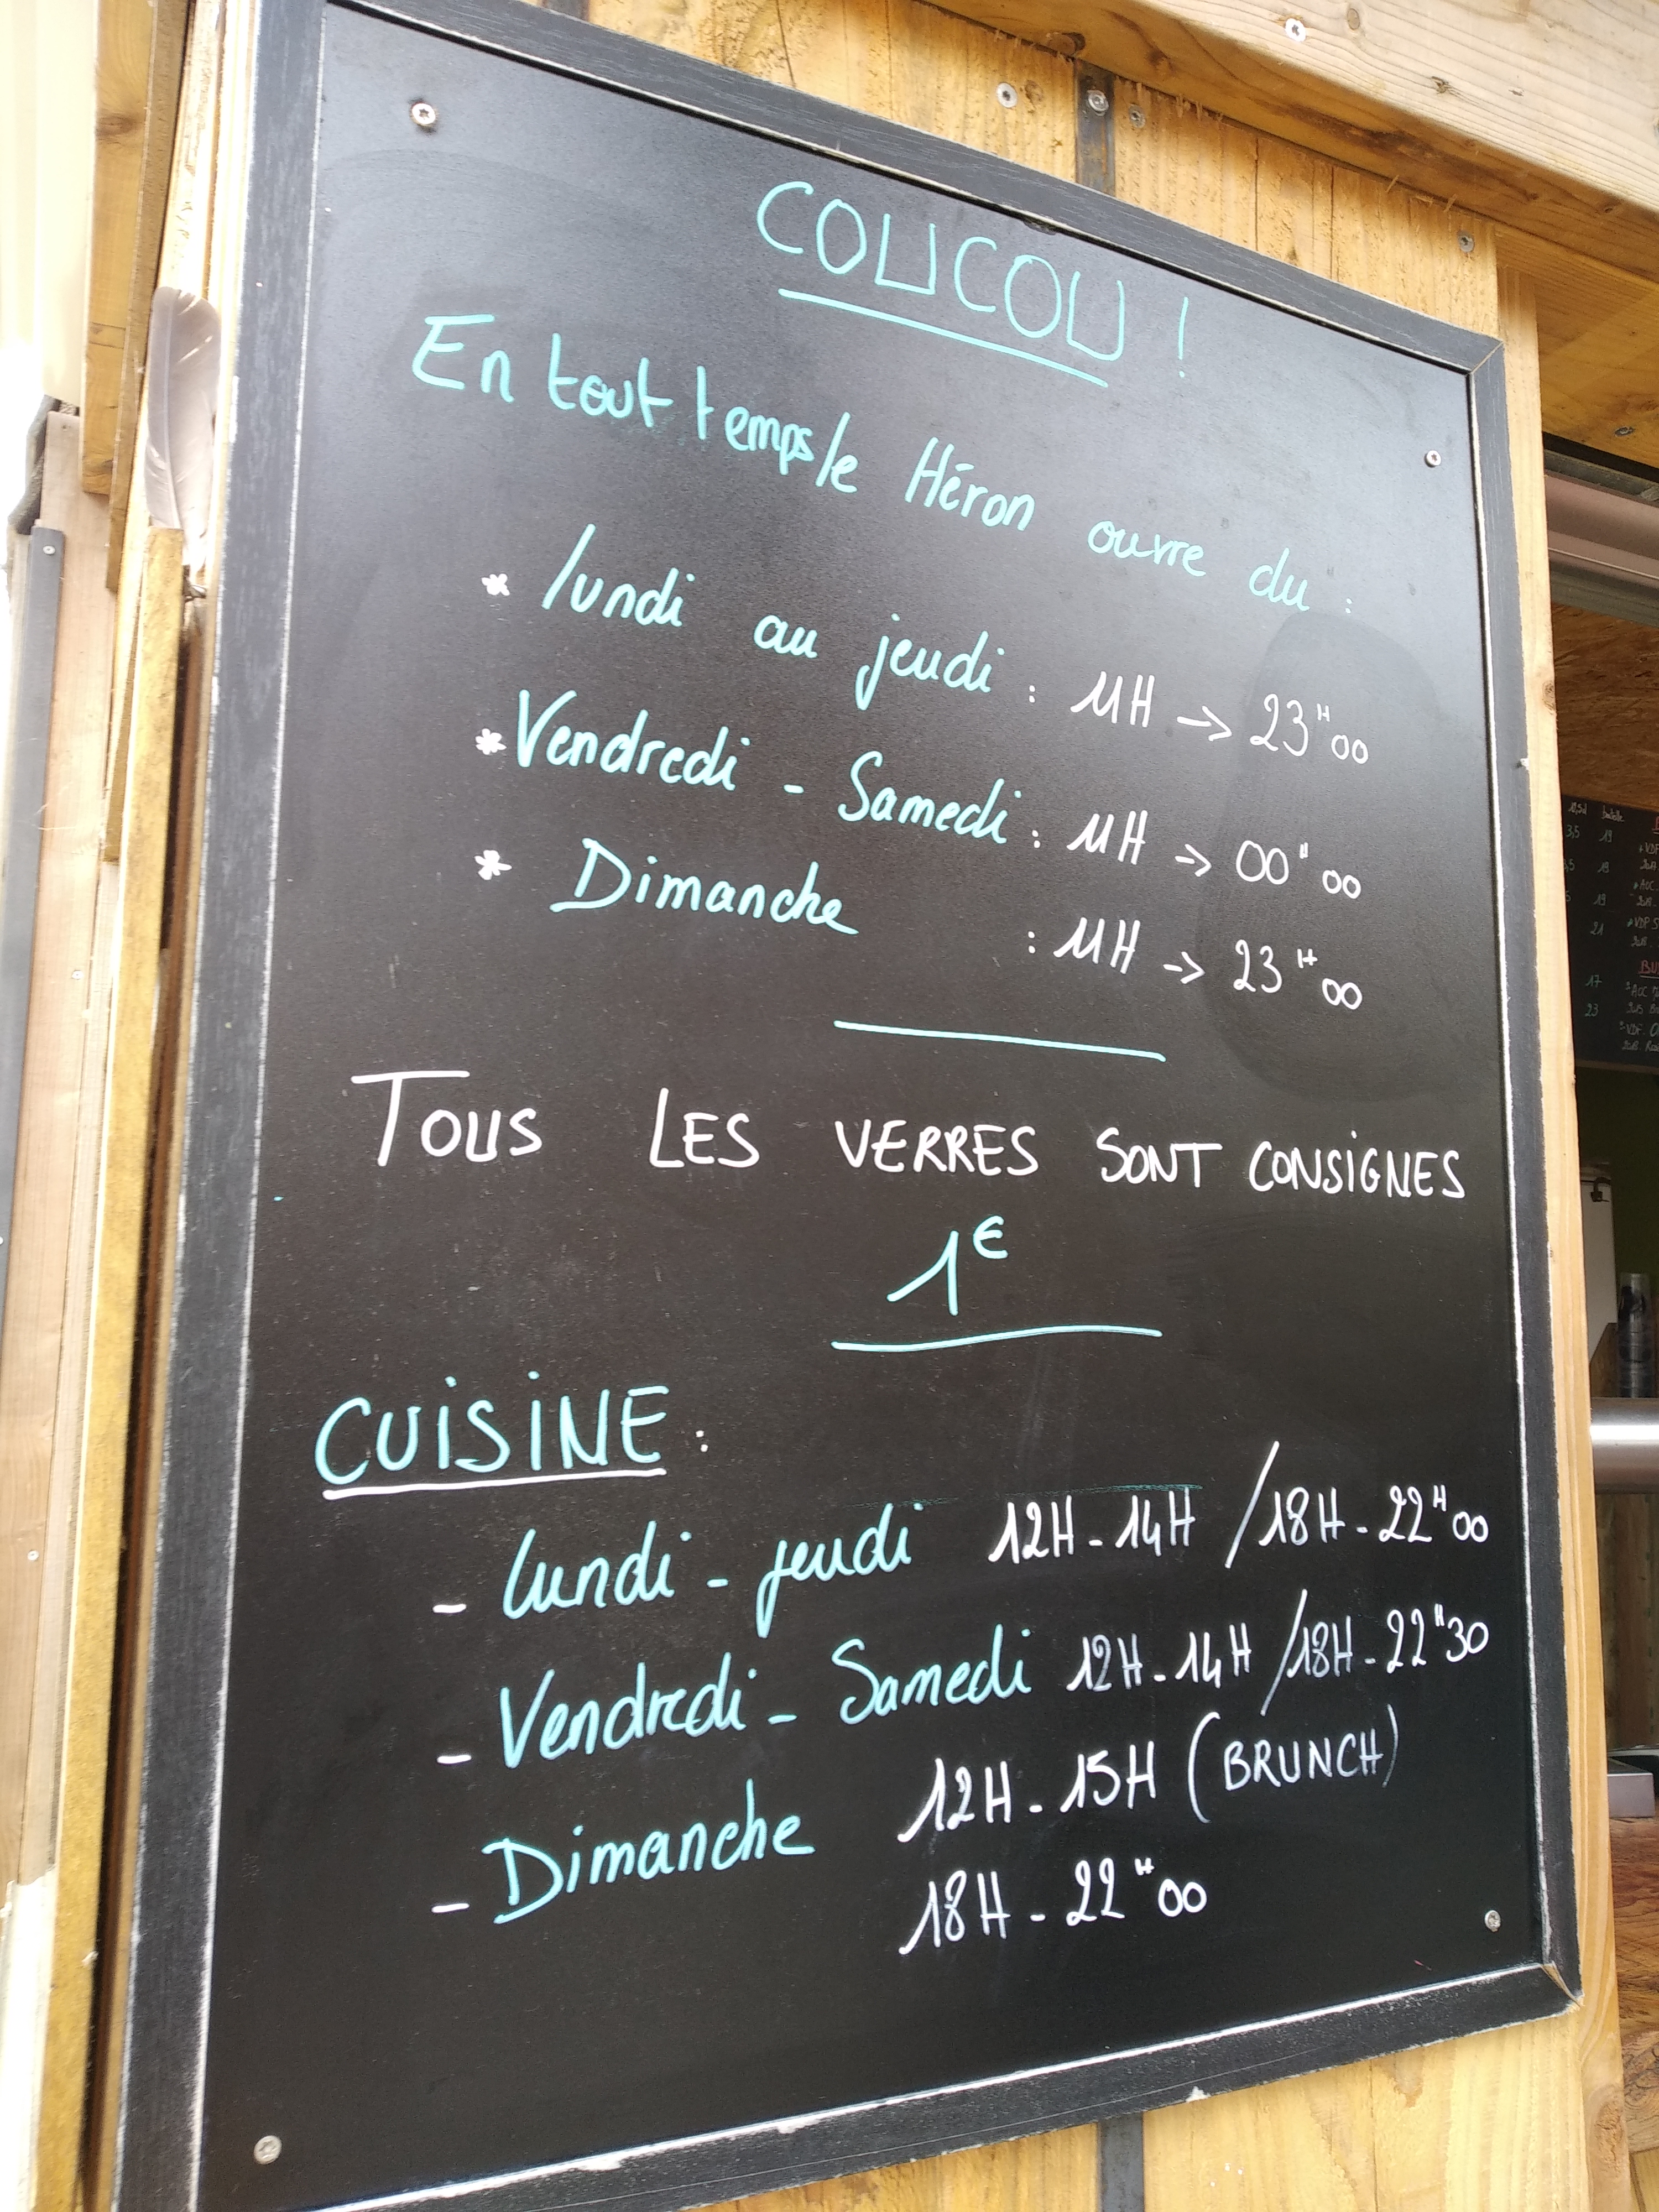 COUCOU !
En tout temps le Héron ouvre du :
* lundi au jeudi : 11H → 23H00
* Vendredi - Samedi : 11H → 00H00
* Dimanche : 11H → 23H00
TOUS LES VERRES SONT CONSIGNES
1€
CUISINE :
- lundi - jeudi 12H - 14H / 18H - 22H00
- Vendredi - Samedi 12H - 14H / 18H - 22H30
- Dimanche 12H - 15H (BRUNCH)
18H - 22H00